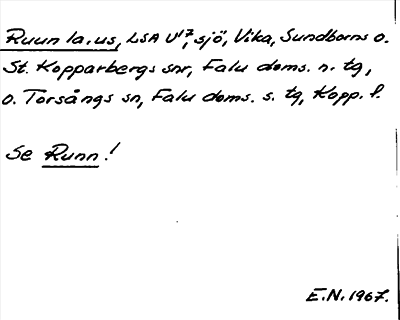 Ruun la.us, LSA U¹⁷, sjö, Vika, Sundborns o.
St. Kopparbergs snr, Falu doms. n. tg,
o. Torsångs sn, Falu doms. s. tg, Kopp. l.
Se Runn!
E.N. 1967.